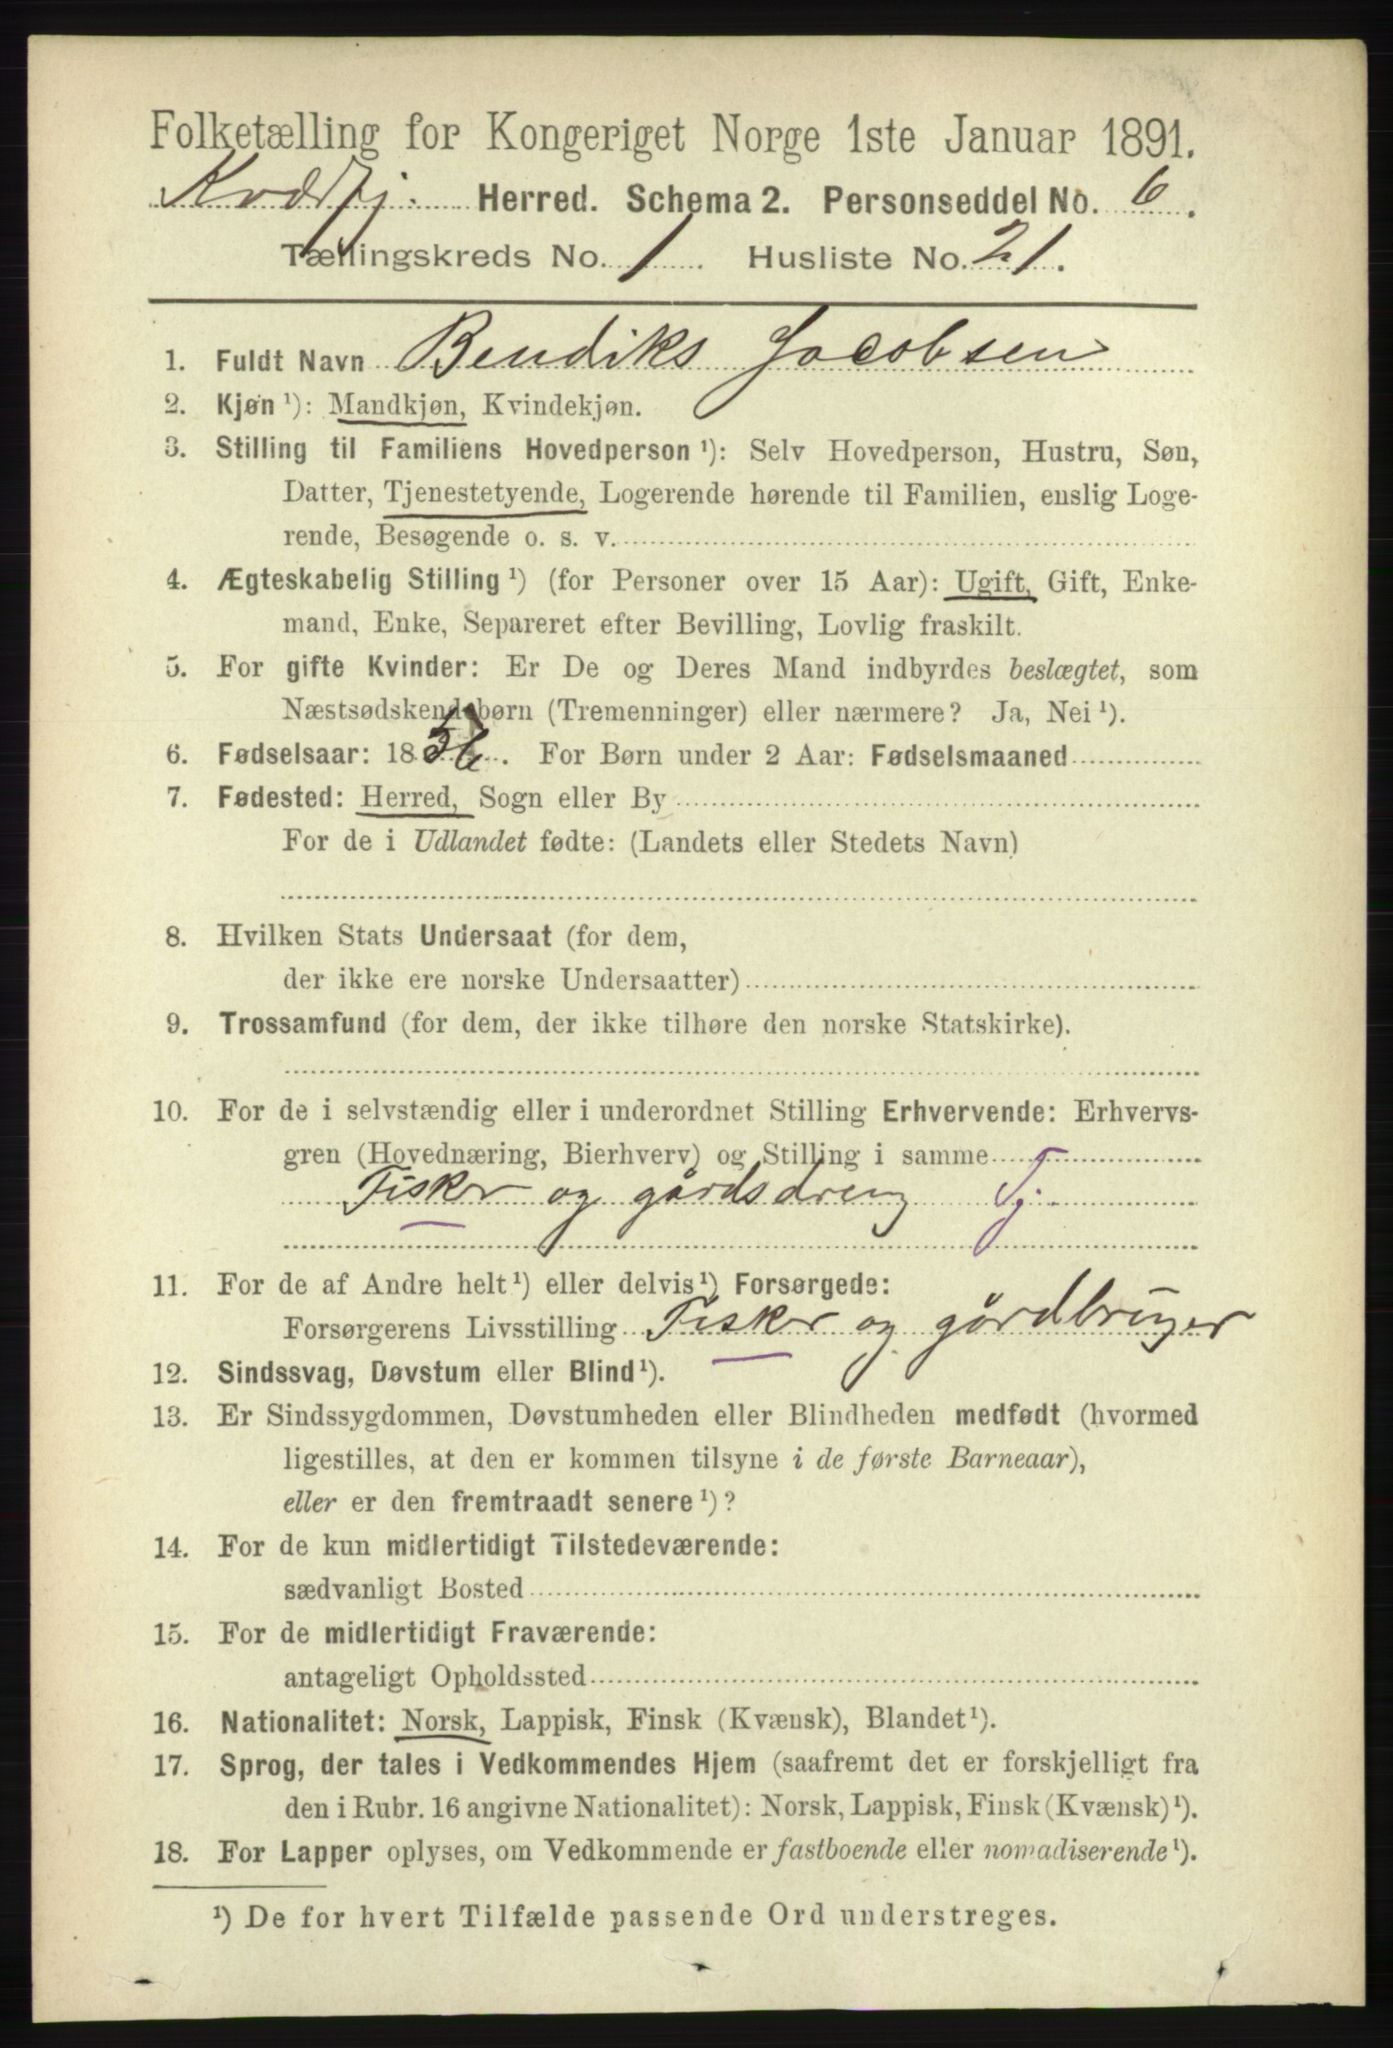 Folketælling for Kongeriget Norge 1ste Januar 1891.
Kvæfj. Herred. Schema 2. Personseddel No. 6.
Tællingskreds No. 1 Husliste No. 21.
1. Fuldt Navn Bendiks Jacobsen
2. Kjøn ¹): Mandkjøn, Kvindekjøn.
3. Stilling til Familiens Hovedperson ¹): Selv Hovedperson, Hustru, Søn,
Datter, Tjenestetyende, Logerende hørende til Familien, enslig Loge-
rende, Besøgende o. s. v.
4. Ægteskabelig Stilling ¹) (for Personer over 15 Aar): Ugift, Gift, Enke-
mand, Enke, Separeret efter Bevilling, Lovlig fraskilt.
5. For gifte Kvinder: Er De og Deres Mand indbyrdes beslægtet, som
Næstsødskendebørn (Tremenninger) eller nærmere? Ja, Nei ¹).
6. Fødselsaar: 1856. For Børn under 2 Aar: Fødselsmaaned
7. Fødested: Herred, Sogn eller By
For de i Udlandet fødte: (Landets eller Stedets Navn)
8. Hvilken Stats Undersaat (for dem,
der ikke ere norske Undersaatter)
9. Trossamfund (for dem, der ikke tilhøre den norske Statskirke).
10. For de i selvstændig eller i underordnet Stilling Erhvervende: Erhvervs-
gren (Hovednæring, Bierhverv) og Stilling i samme
Fisker og gårdsdreng Tj.
11. For de af Andre helt ¹) eller delvis ¹) Forsørgede:
Forsørgerens Livsstilling Fisker og gårdbruger
12. Sindssvag, Døvstum eller Blind ¹).
13. Er Sindssygdommen, Døvstumheden eller Blindheden medfødt (hvormed
ligestilles, at den er kommen tilsyne i de første Barneaar),
eller er den fremtraadt senere ¹)?
14. For de kun midlertidigt Tilstedeværende:
sædvanligt Bosted
15. For de midlertidigt Fraværende:
antageligt Opholdssted
16. Nationalitet: Norsk, Lappisk, Finsk (Kvænsk), Blandet ¹).
17. Sprog, der tales i Vedkommendes Hjem (saafremt det er forskjelligt fra
den i Rubr. 16 angivne Nationalitet): Norsk, Lappisk, Finsk (Kvænsk) ¹).
18. For Lapper oplyses, om Vedkommende er fastboende eller nomadiserende ¹).
¹) De for hvert Tilfælde passende Ord understreges.